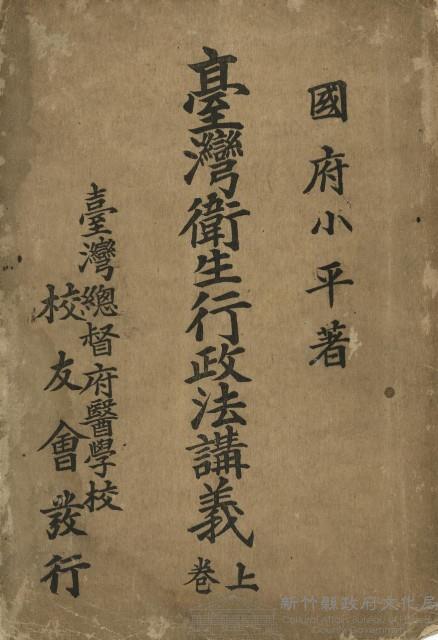 國府小平著
臺灣衛生行政法講義
上卷
臺灣總督府醫學校
校友會發行
新竹縣政府文化局
Cultural Affairs Bureau of Hsinchu
County Government